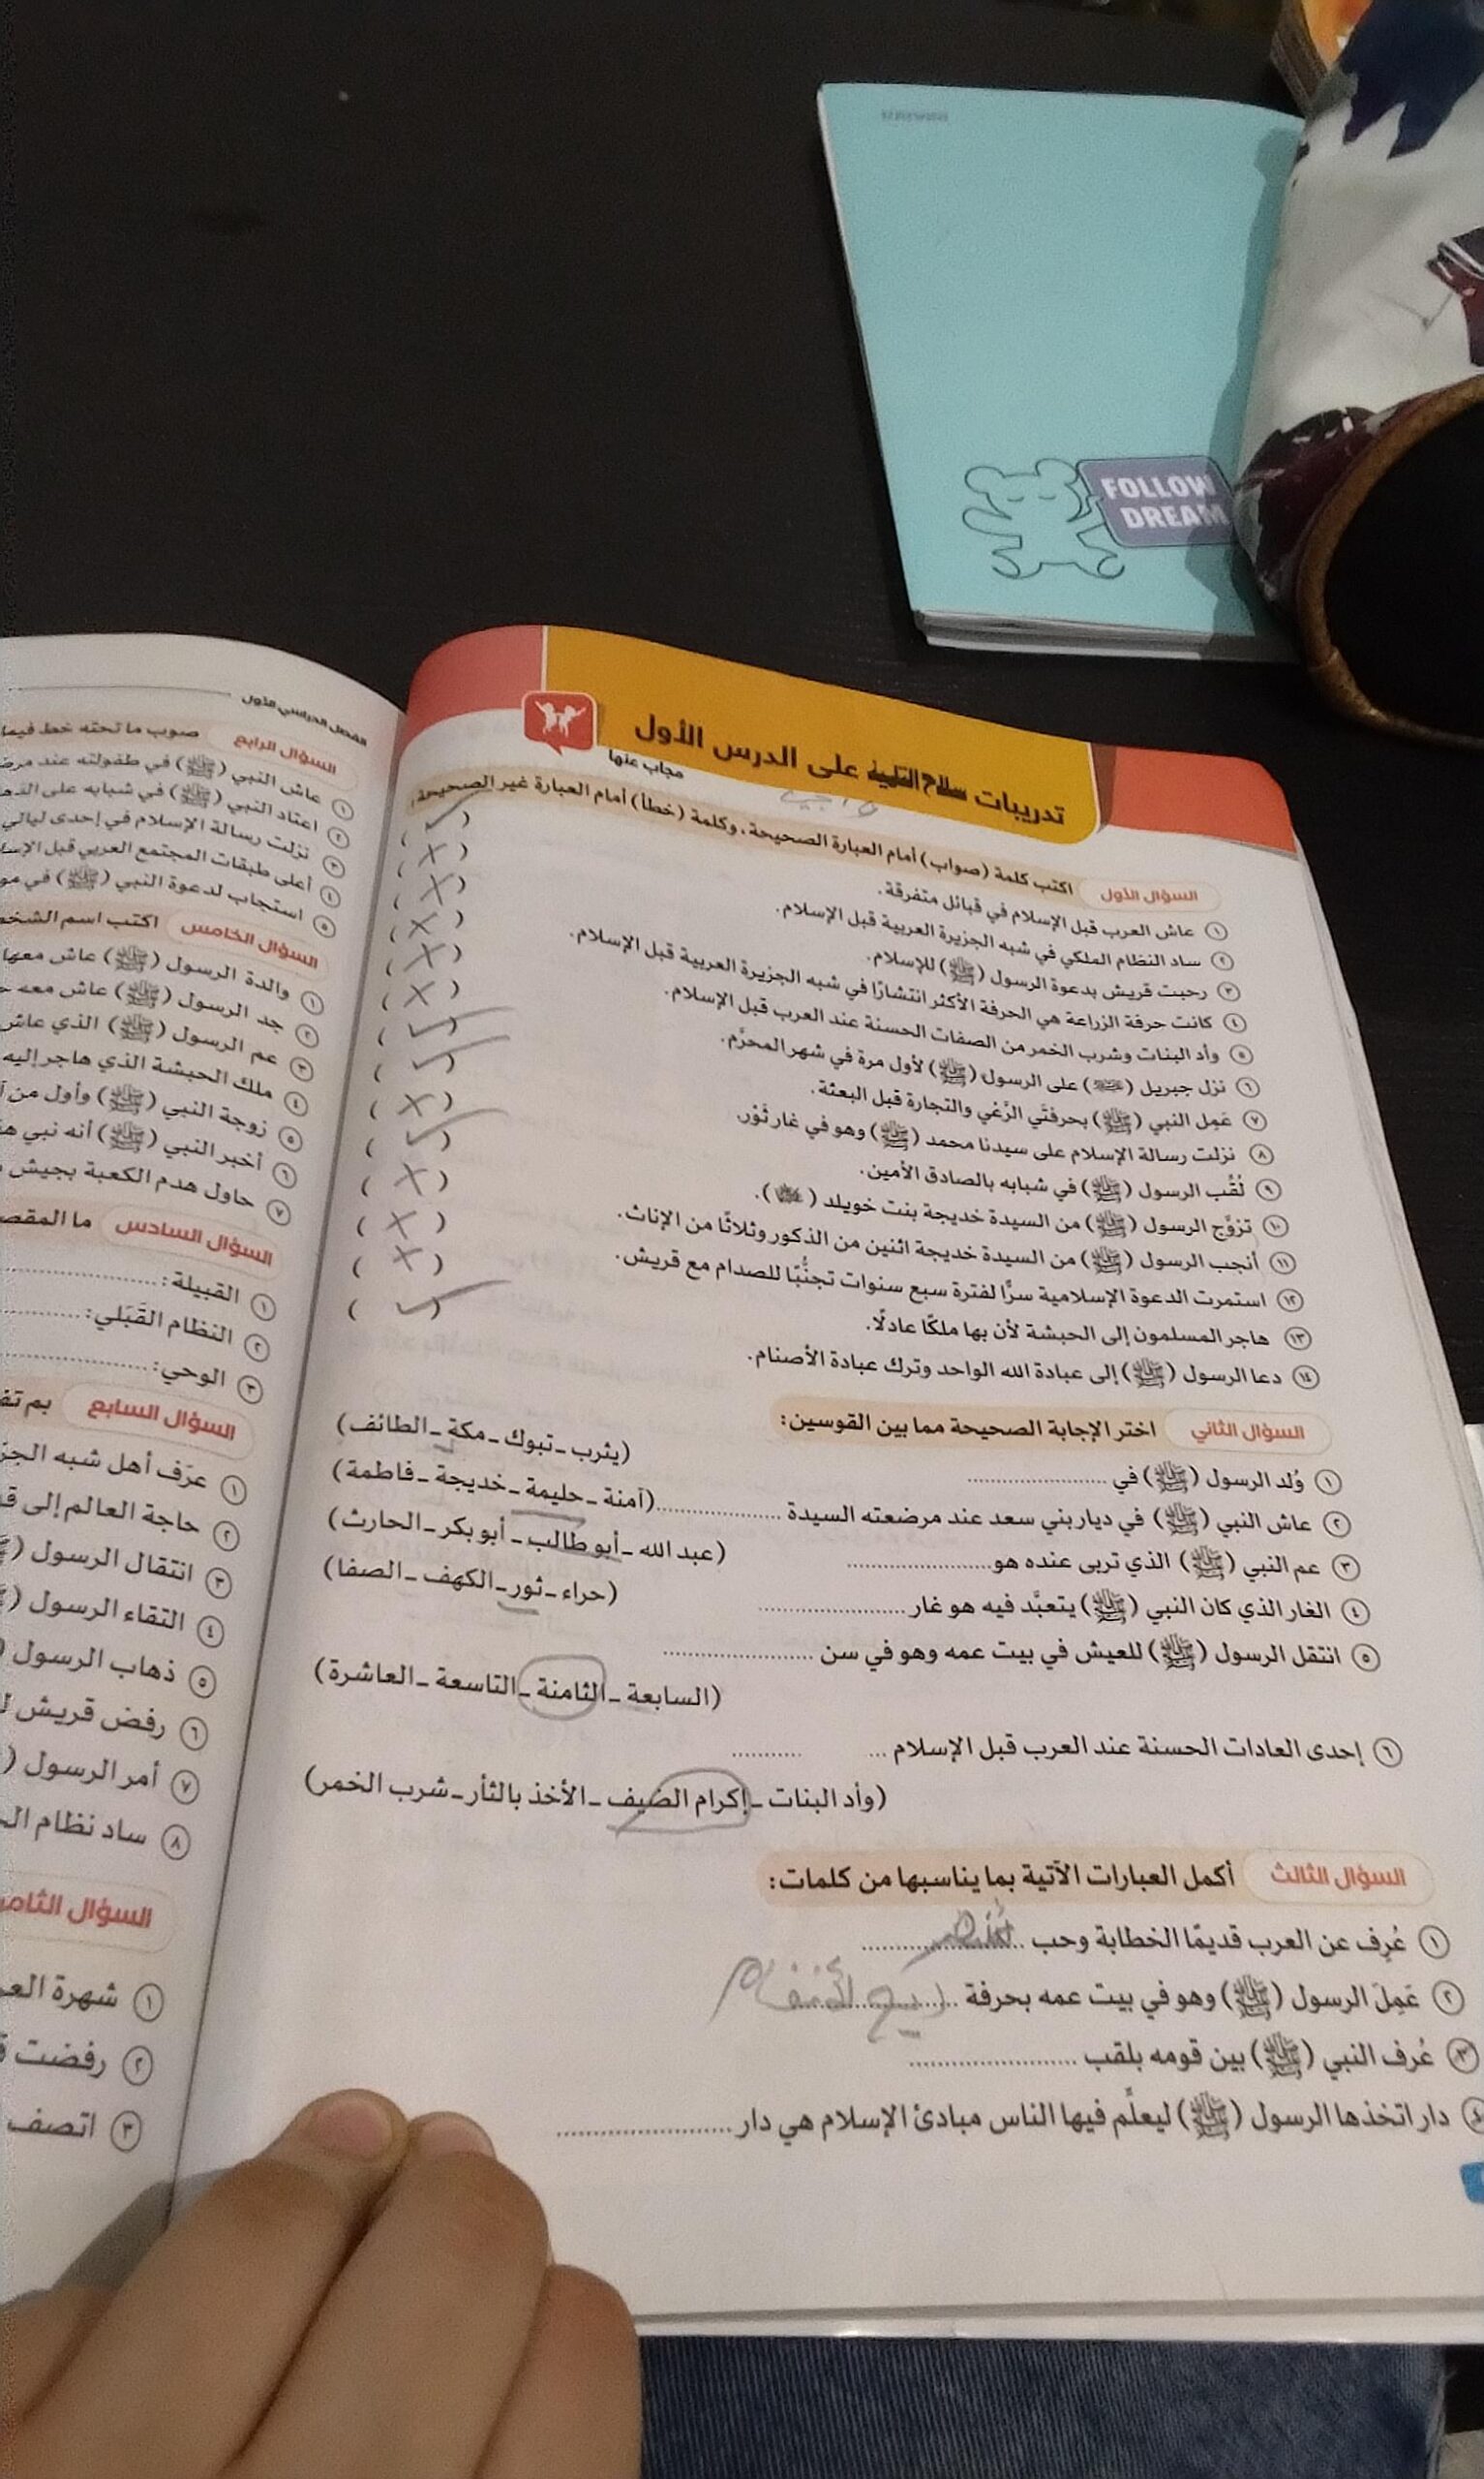 FOLLOW
DREAM
تدريبات سلاح التلميذ على الدرس الأول
مجاب عنها
السؤال الأول اكتب كلمة (صواب) أمام العبارة الصحيحة، وكلمة (خطأ) أمام العبارة غير الصحيحة:
١ عاش العرب قبل الإسلام في قبائل متفرقة. (✓)
٢ ساد النظام الملكي في شبه الجزيرة العربية قبل الإسلام. (X)
٣ رحبت قريش بدعوة الرسول (ﷺ) للإسلام. (X)
٤ كانت حرفة الزراعة هي الحرفة الأكثر انتشارًا في شبه الجزيرة العربية قبل الإسلام. (X)
٥ وأد البنات وشرب الخمر من الصفات الحسنة عند العرب قبل الإسلام. (X)
٦ نزل جبريل () على الرسول (ﷺ) لأول مرة في شهر المحرَّم. (X)
٧ عَمِل النبي (ﷺ) بحرفتَي الرَّعْي والتجارة قبل البعثة. (✓)
٨ نزلت رسالة الإسلام على سيدنا محمد (ﷺ) وهو في غار ثَوْر. (✓)
٩ لُقِّب الرسول (ﷺ) في شبابه بالصادق الأمين. (X)
١٠ تزوَّج الرسول (ﷺ) من السيدة خديجة بنت خويلد (). (✓)
١١ أنجب الرسول (ﷺ) من السيدة خديجة اثنين من الذكور وثلاثًا من الإناث. (X)
١٢ استمرت الدعوة الإسلامية سرًّا لفترة سبع سنوات تجنُّبًا للصدام مع قريش. (X)
١٣ هاجر المسلمون إلى الحبشة لأن بها ملكًا عادلًا. (X)
١٤ دعا الرسول (ﷺ) إلى عبادة الله الواحد وترك عبادة الأصنام. (✓)
السؤال الثاني اختر الإجابة الصحيحة مما بين القوسين:
١ وُلد الرسول (ﷺ) في .......................... (يثرب - تبوك - مكة - الطائف)
٢ عاش النبي (ﷺ) في ديار بني سعد عند مرضعته السيدة .......................... (آمنة - حليمة - خديجة - فاطمة)
٣ عم النبي (ﷺ) الذي تربى عنده هو .......................... (عبد الله - أبو طالب - أبو بكر - الحارث)
٤ الغار الذي كان النبي (ﷺ) يتعبَّد فيه هو غار .......................... (حراء - ثور - الكهف - الصفا)
٥ انتقل الرسول (ﷺ) للعيش في بيت عمه وهو في سن ..........................
(السابعة - الثامنة - التاسعة - العاشرة)
٦ إحدى العادات الحسنة عند العرب قبل الإسلام ... ............
(وأد البنات - إكرام الضيف - الأخذ بالثأر - شرب الخمر)
السؤال الثالث أكمل العبارات الآتية بما يناسبها من كلمات:
١ عُرِف عن العرب قديمًا الخطابة وحب ..........................
٢ عَمِلَ الرسول (ﷺ) وهو في بيت عمه بحرفة ..........................
٣ عُرف النبي (ﷺ) بين قومه بلقب ..........................
٤ دار اتخذها الرسول (ﷺ) ليعلِّم فيها الناس مبادئ الإسلام هي دار ..........................
الفصل الدراسي الأول
السؤال الرابع صوب ما تحته خط فيما
١ عاش النبي (ﷺ) في طفولته عند
٢ اعتاد النبي (ﷺ) في شبابه على
٣ نزلت رسالة الإسلام في إحدى ليالي
٤ أعلى طبقات المجتمع العربي قبل
٥ استجاب لدعوة النبي (ﷺ) في
السؤال الخامس اكتب اسم
١ والدة الرسول (ﷺ) عاش معها
٢ جد الرسول (ﷺ) عاش معه
٣ عم الرسول (ﷺ) الذي عاش
٤ ملك الحبشة الذي هاجر إليه
٥ زوجة النبي (ﷺ) وأول من
٦ أخبر النبي (ﷺ) أنه نبي
٧ حاول هدم الكعبة بجيش
السؤال السادس ما
١ القبيلة: ..........................
٢ النظام القَبَلي: ..........................
٣ الوحي: ..........................
السؤال السابع بم
١ عرَف أهل شبه
٢ حاجة العالم إلى
٣ انتقال الرسول (
٤ التقاء الرسول (
٥ ذهاب الرسول
٦ رفض قريش
٧ أمر الرسول (
٨ ساد نظام
السؤال
١ شهرة
٢ رفضت
٣ اتصف